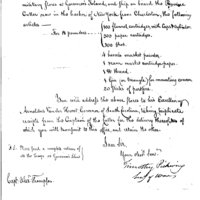 military stores at Governors Island, and ship on board the Revenue
Cutter now in the harbor of New York from Charleston, the following
articles —
For 18 pounders — 100 flannel cartridges with Caps & Cylinders
300 paper cartridges.
300 shot.
4 barrels musket powder.
1 ream musket cartridge paper.
1 lb thread.
1 Gin (or Triangle) for mounting cannon
20 Sticks of portfire.
You will address the above stores to his Excellency
Arnoldus Vander Horst Governor of South Carolina, taking triplicate
receipts from the Captain of the Cutter for the delivery thereof, two of
which you will transmit to this office, and retain the other.
I am Sir
Your obed. Serv.
Timothy Pickering
Secy of War
a complete return of
the Troops at Governor's Island
Capt. Alexr. Thompson